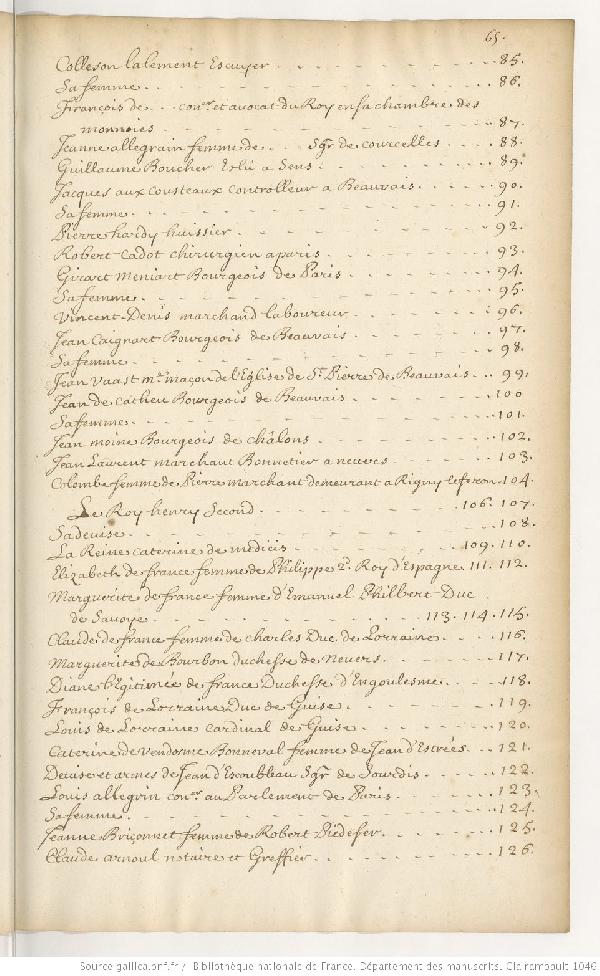 65.
Colleson lalement Escuyer . . . . . . . . 85.
Sa femme . . . . . . . . 86.
François de . . . con.er et avocat du Roy en sa chambre des
monnoies . . . . . . . . 87.
Jeanne allegrain femme de . . . Sgr de courcelles . . . . 88.
Guillaume Boucher Eslû a Sens . . . . . . . . 89.
Jacques aux cousteaux controlleur a Beauvais . . . . . 90.
Sa femme . . . . . . . . 91.
Pierre hardy huissier . . . . . . . . 92.
Robert Cadot chirurgien a paris . . . . . . . . 93.
Girart Meniart Bourgeois de Paris . . . . . . . . 94.
Sa femme . . . . . . . . 95.
Vincent Denis marchand laboureur . . . . . . . . 96.
Jean Caignart Bourgeois de Beauvais . . . . . . . . 97.
Sa femme . . . . . . . . 98.
Jean Vaast m.e maçon de l'Eglise de St. Pierre de Beauvais . . . 99.
Jean de Catheu Bourgeois de Beauvais . . . . . . . . 100
Sa femme . . . . . . . . 101.
Jean moine Bourgeois de châlons . . . . . . . . 102.
Jean Laurent marchant Bonnetier a nevers . . . . . . . . 103.
Colombe femme de Pierre marchant demeurant a Rigny le feron . 104.
Le Roy henry Second . . . . . . . . 106. 107.
Sa devise . . . . . . . . 108.
La Reine caterine de medicis . . . . . . . . 109. 110.
Elizabeth de france femme de Philippe 2.d Roy d'Espagne 111. 112.
Marguerite de france femme d'Emanuel Philbert Duc
de Savoye . . . . . . . . 113. 114. 115.
Claude de france femme de charles Duc de Lorraine . . . . 116.
Marguerite de Bourbon duchesse de Nevers . . . . . . . . 117.
Diane legitimée de france Duchesse d'Engoulesme . . . . 118.
François de Lorraine Duc de Guise . . . . . . . . 119.
Louis de Lorraine Cardinal de Guise . . . . . . . . 120.
Caterine de Vendosme Bonneval femme de Jean d'Estrées . . 121.
Devise et armes de Jean d'Escoubleau Sgr de Sourdis . . . . 122.
Louis allegrin con.er au Parlement de Paris . . . . . . . . 123.
Sa femme . . . . . . . . 124.
Jeanne Briçonnet femme de Robert Piedefer . . . . . . . . 125.
Claude arnoul notaire et Greffier . . . . . . . . 126.
Source gallica.bnf.fr / Bibliothèque nationale de France. Département des manuscrits. Clairambault 1046